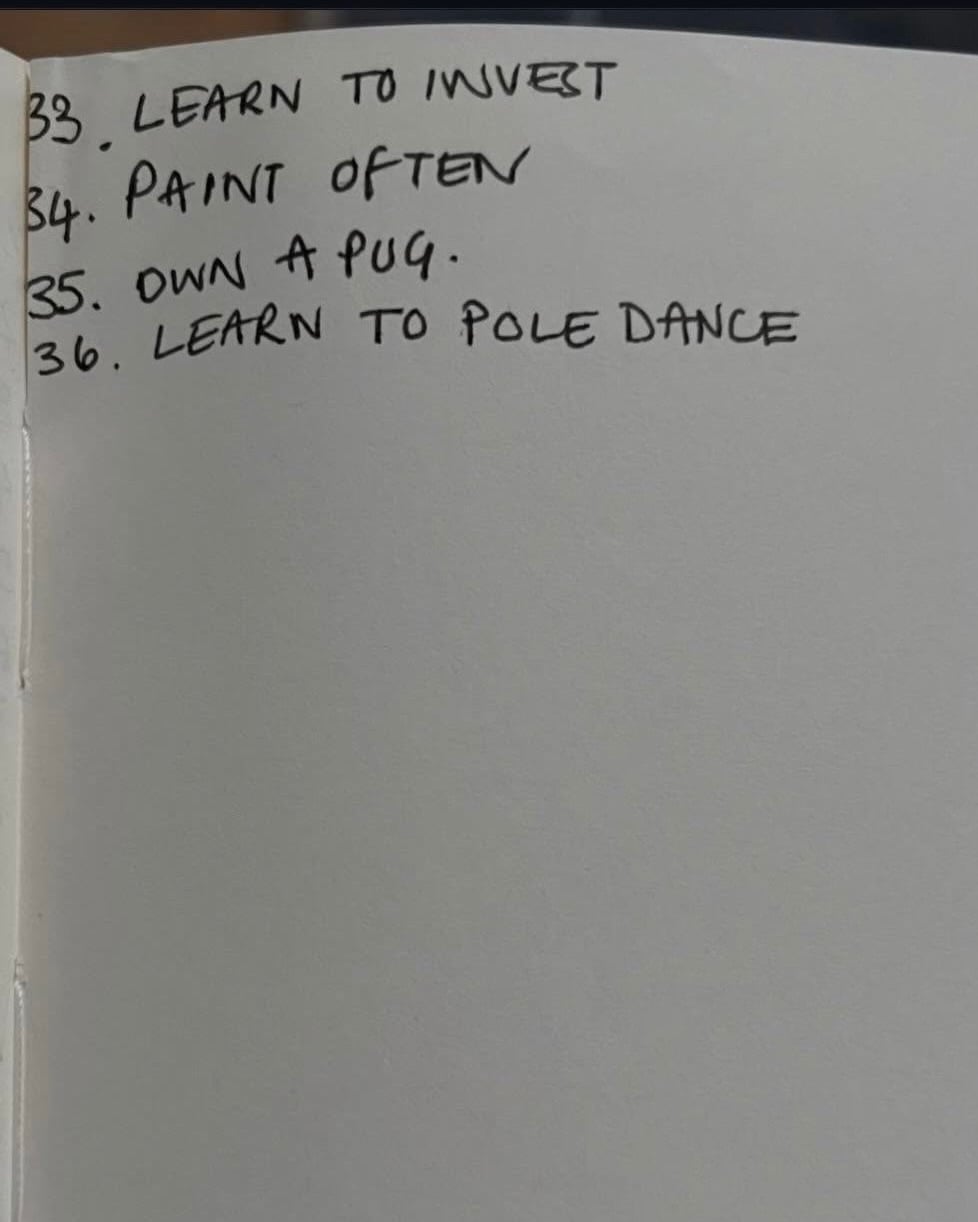 33. LEARN TO INVEST
34. PAINT OFTEN
35. OWN A PUG.
36. LEARN TO POLE DANCE